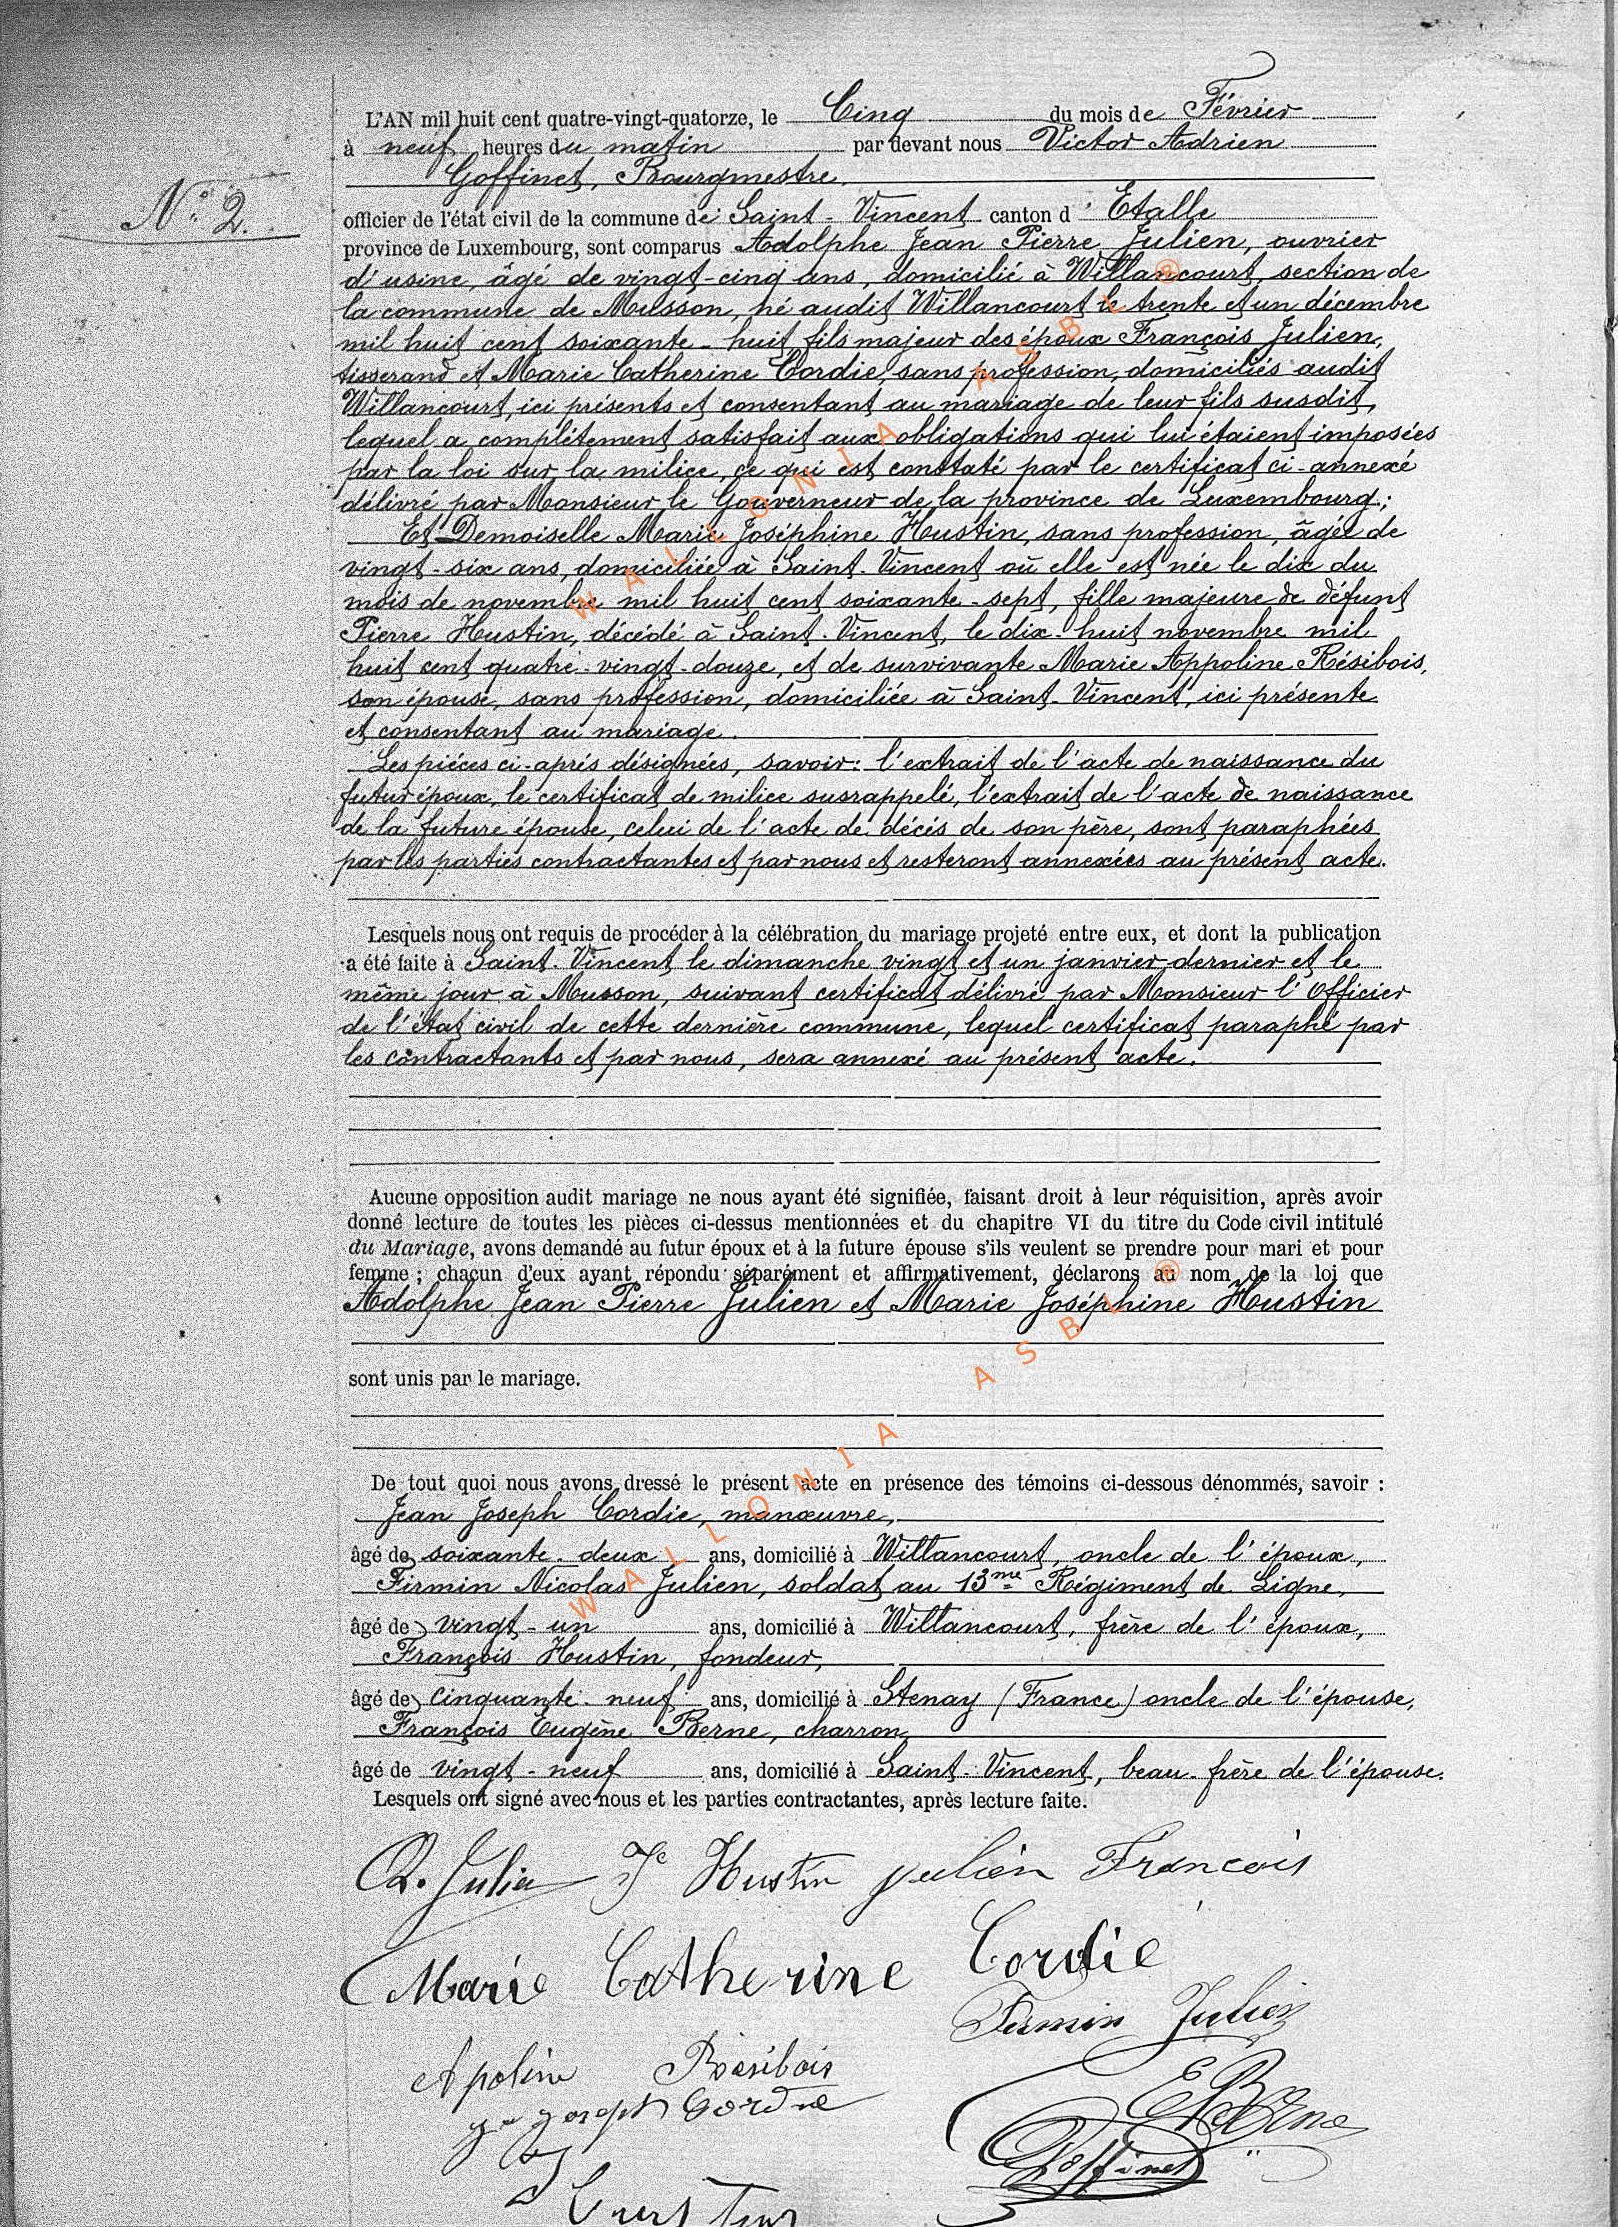 L'AN mil huit cent quatre-vingt-quatorze, le Cinq du mois de Février
à neuf heures du matin par devant nous Victor Adrien
Goffinet, Bourgmestre
N° 2.
officier de l'état civil de la commune de Saint-Vincent canton d'Etalle
province de Luxembourg, sont comparus Adolphe Jean Pierre Julien, ouvrier
d'usine, âgé de vingt-cinq ans, domicilié à Willancourt, section de
la commune de Musson, né audit Willancourt le trente et un décembre
mil huit cent soixante-huit, fils majeur des époux François Julien,
tisserand et Marie Catherine Cordie, sans profession, domiciliés audit
Willancourt, ici présents et consentant au mariage de leur fils susdit,
lequel a complètement satisfait aux obligations qui lui étaient imposées
par la loi sur la milice, ce qui est constaté par le certificat ci-annexé
délivré par Monsieur le Gouverneur de la province de Luxembourg;
Et Demoiselle Marie Joséphine Hustin, sans profession, âgée de
vingt-six ans, domiciliée à Saint-Vincent où elle est née le dix du
mois de novembre mil huit cent soixante-sept, fille majeure de défunt
Pierre Hustin, décédé à Saint-Vincent, le dix-huit novembre mil
huit cent quatre-vingt-douze, et de survivante Marie Appoline Résibois,
son épouse, sans profession, domiciliée à Saint-Vincent, ici présente
et consentant au mariage.
Les pièces ci-après désignées, savoir: l'extrait de l'acte de naissance du
futur époux, le certificat de milice susrappelé, l'extrait de l'acte de naissance
de la future épouse, celui de l'acte de décès de son père, sont paraphées
par les parties contractantes et par nous et resteront annexées au présent acte.
Lesquels nous ont requis de procéder à la célébration du mariage projeté entre eux, et dont la publication
a été faite à Saint-Vincent le dimanche vingt et un janvier dernier et le
même jour à Musson, suivant certificat délivré par Monsieur l'Officier
de l'état civil de cette dernière commune, lequel certificat paraphé par
les contractants et par nous, sera annexé au présent acte.
Aucune opposition audit mariage ne nous ayant été signifiée, faisant droit à leur réquisition, après avoir
donné lecture de toutes les pièces ci-dessus mentionnées et du chapitre VI du titre du Code civil intitulé
du Mariage, avons demandé au futur époux et à la future épouse s'ils veulent se prendre pour mari et pour
femme ; chacun d'eux ayant répondu séparément et affirmativement, déclarons au nom de la loi que
Adolphe Jean Pierre Julien et Marie Joséphine Hustin
sont unis par le mariage.
De tout quoi nous avons dressé le présent acte en présence des témoins ci-dessous dénommés, savoir :
Jean Joseph Cordie, manœuvre,
âgé de soixante-deux ans, domicilié à Willancourt, oncle de l'époux,
Firmin Nicolas Julien, soldat au 13me Régiment de Ligne,
âgé de vingt-un ans, domicilié à Willancourt, frère de l'époux,
François Hustin, fondeur,
âgé de cinquante-neuf ans, domicilié à Stenay (France) oncle de l'épouse,
François Eugène Berne, charron
âgé de vingt-neuf ans, domicilié à Saint-Vincent, beau-frère de l'épouse.
Lesquels ont signé avec nous et les parties contractantes, après lecture faite.
A. Julien Je Hustin Julien François
Marie Catherine Cordie
Firmin Julien
Apoline Résibois
Jn Joseph Cordie
E Berne
Goffinet
WALLONIA ASBL ®
WALLONIA ASBL ®